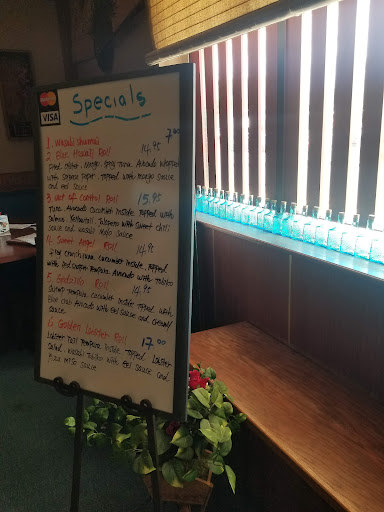 MasterCard
VISA
Specials
1. Wasabi Shumai 7.00
2. Blue Hawaii Roll 14.95
Fried oyster, Mango, spicy tuna Avocado wrapped
with soybean paper, topped with mango sauce
and eel sauce
3. out of Control Roll 15.95
Tuna Avocado Cucumber inside Topped with
Salmon Jalapeno with sweet chili
sauce and wasabi mayo sauce
4. Sweet Angel Roll 14.95
Spicy crunch tuna cucumber inside, Topped
with Avocado with
5. Godzilla Roll 14.95
Shrimp Tempura cucumber inside Topped with
Blue crab Avocado with Eel sauce and creamy
sauce
6. Golden Lobster Roll 17.00
Lobster Tail Tempura inside Topped Lobster
Salad, wasabi Tobiko with Eel sauce and
miso sauce